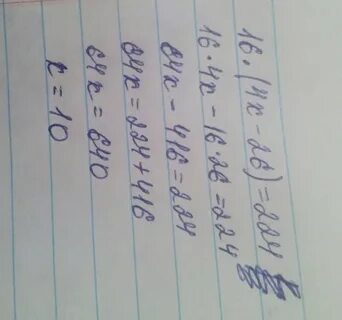 16·(4x-26)=224
16·4x-16·26=224
64x-416=224
64x=224+416
64x=640
x=10